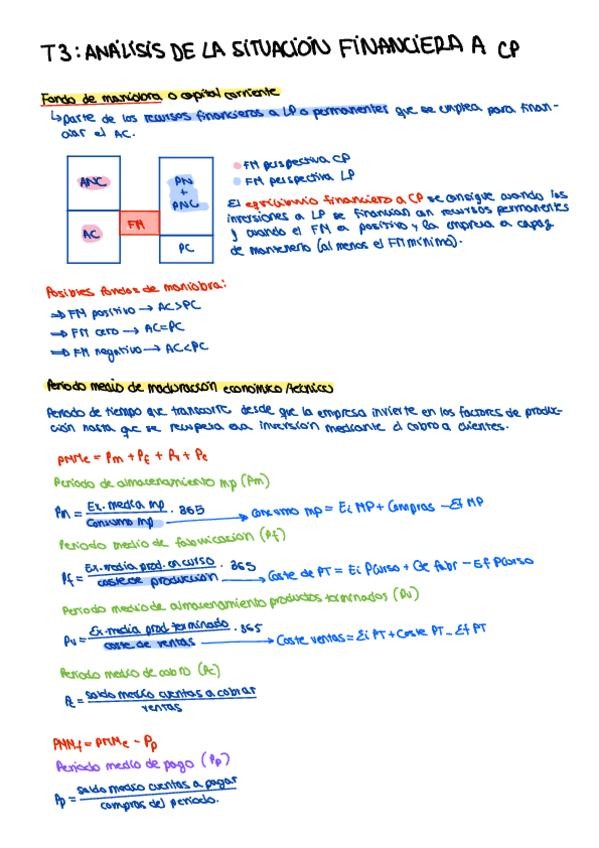 T3: ANÁLISIS DE LA SITUACIÓN FINANCIERA A CP
Fondo de maniobra o capital corriente
↳ parte de los recursos financieros a LP o permanentes que se emplea para finan-
ciar el AC.
ANC
AC
FM
PN
+
PNC
PC
FM perspectiva CP
FM perspectiva LP
El equilibrio financiero a CP se consigue cuando las
inversiones a LP se financian con recursos permanentes
y cuando el FM es positivo y la empresa es capaz
de mantenerlo (al menos el FM mínimo).
Posibles fondos de maniobra:
⇒ FM positivo → AC>PC
⇒ FM cero → AC=PC
⇒ FM negativo → AC<PC
Periodo medio de maduración económico/técnico
Periodo de tiempo que transcurre desde que la empresa invierte en los factores de produc-
ción hasta que se recupera esa inversión mediante el cobro a clientes.
PMMe = Pm + Pf + Pv + Pc
Periodo de almacenamiento mp (Pm)
Pm = Ex. media mp / Consumo mp · 365 → Consumo mp = Ei MP + Compras - Ef MP
Periodo medio de fabricación (Pf)
Pf = Ex. media prod. en curso / coste de producción · 365 → Coste de PT = Ei PCurso + Cte fabr - Ef PCurso
Periodo medio de almacenamiento productos terminados (Pv)
Pv = Ex. media prod terminado / coste de ventas · 365 → Coste ventas = Ei PT + Coste PT - Ef PT
Periodo medio de cobro (Pc)
Pc = saldo medio cuentas a cobrar / ventas
PMMf = PMMe - Pp
Periodo medio de pago (Pp)
Pp = saldo medio cuentas a pagar / compras del periodo.